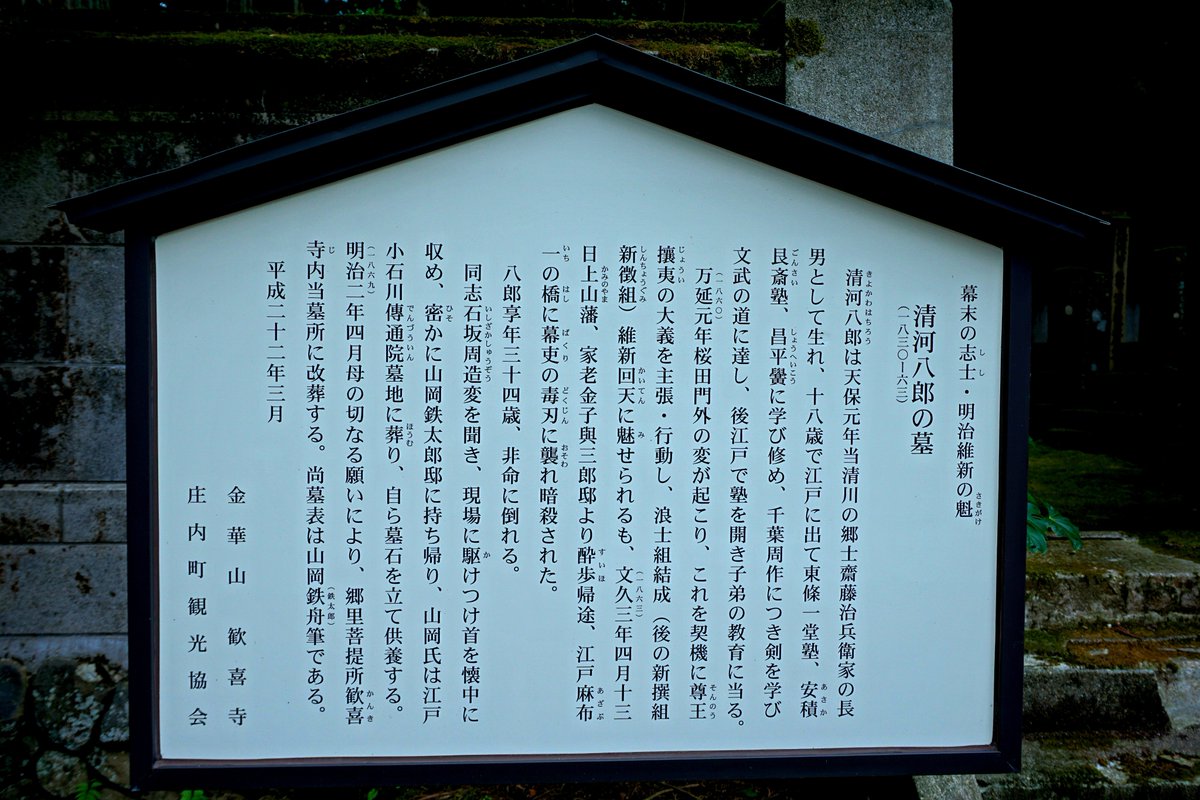 幕末の志士・明治維新の魁
清河八郎の墓
(一八三〇ー六三)
清河八郎は天保元年当清川の郷士齋藤治兵衛家の長
男として生れ、十八歳で江戸に出て東條一堂塾、安積
艮斎塾、昌平黌に学び修め、千葉周作につき剣を学び
文武の道に達し、後江戸で塾を開き子弟の教育に当る。
万延元年(一八六〇)桜田門外の変が起こり、これを契機に尊王
攘夷の大義を主張・行動し、浪士組結成(後の新撰組
新徴組)維新回天に魅せられるも、文久三年(一八六三)四月十三
日上山藩、家老金子與三郎邸より酔歩帰途、江戸麻布
一の橋に幕吏の毒刃に襲れ暗殺された。
八郎享年三十四歳、非命に倒れる。
同志石坂周造変を聞き、現場に駆けつけ首を懐中に
収め、密かに山岡鉄太郎邸に持ち帰り、山岡氏は江戸
小石川傳通院墓地に葬り、自ら墓石を立て供養する。
明治二年(一八六九)四月母の切なる願いにより、郷里菩提所歓喜
寺内当墓所に改葬する。尚墓表は山岡鉄舟(鉄太郎)筆である。
平成二十二年三月
金華山 歓喜寺
庄内町観光協会